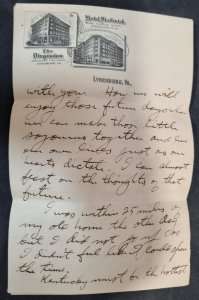 Hotel Carroll
The
Virginian
LYNCHBURG, VA.
LYNCHBURG, VA.
with you. How we will
enjoy those future days when
we can make those little
sojourns together and live
our own lives just as our
hearts dictate. I can almost
feast on the thoughts of that
future.
I was within 25 miles of
my old home the other day
but I did not go by as
I didn't feel like I could spare
the time.
Kentucky must be the hottest